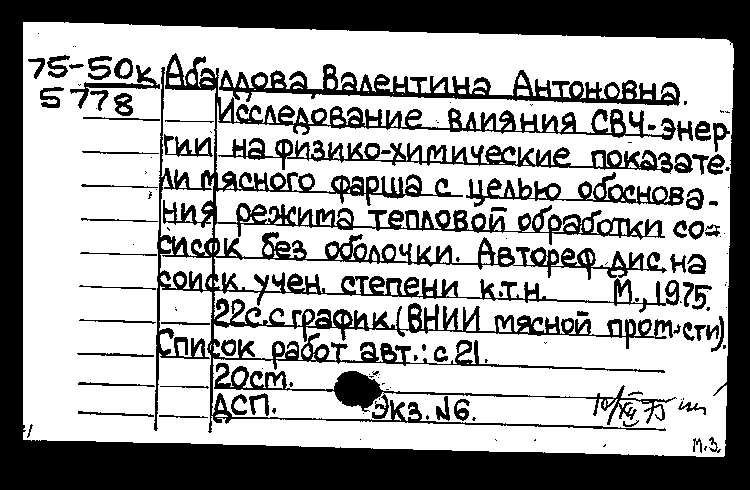 75-50к Абалдова, Валентина Антоновна.
5778
Исследование влияния СВЧ-энер
гии на физико-химические показате-
ли мясного фарша с целью обоснова-
ния режима тепловой обработки со-
сисок без оболочки. Автореф. дис. на
соиск. учен. степени к.т.н. М., 1975.
22с. с график. (ВНИИ мясной пром-сти).
Список работ авт.: с. 21.
20ст.
ДСП. Экз. №6. 10/XII 75
м.з.